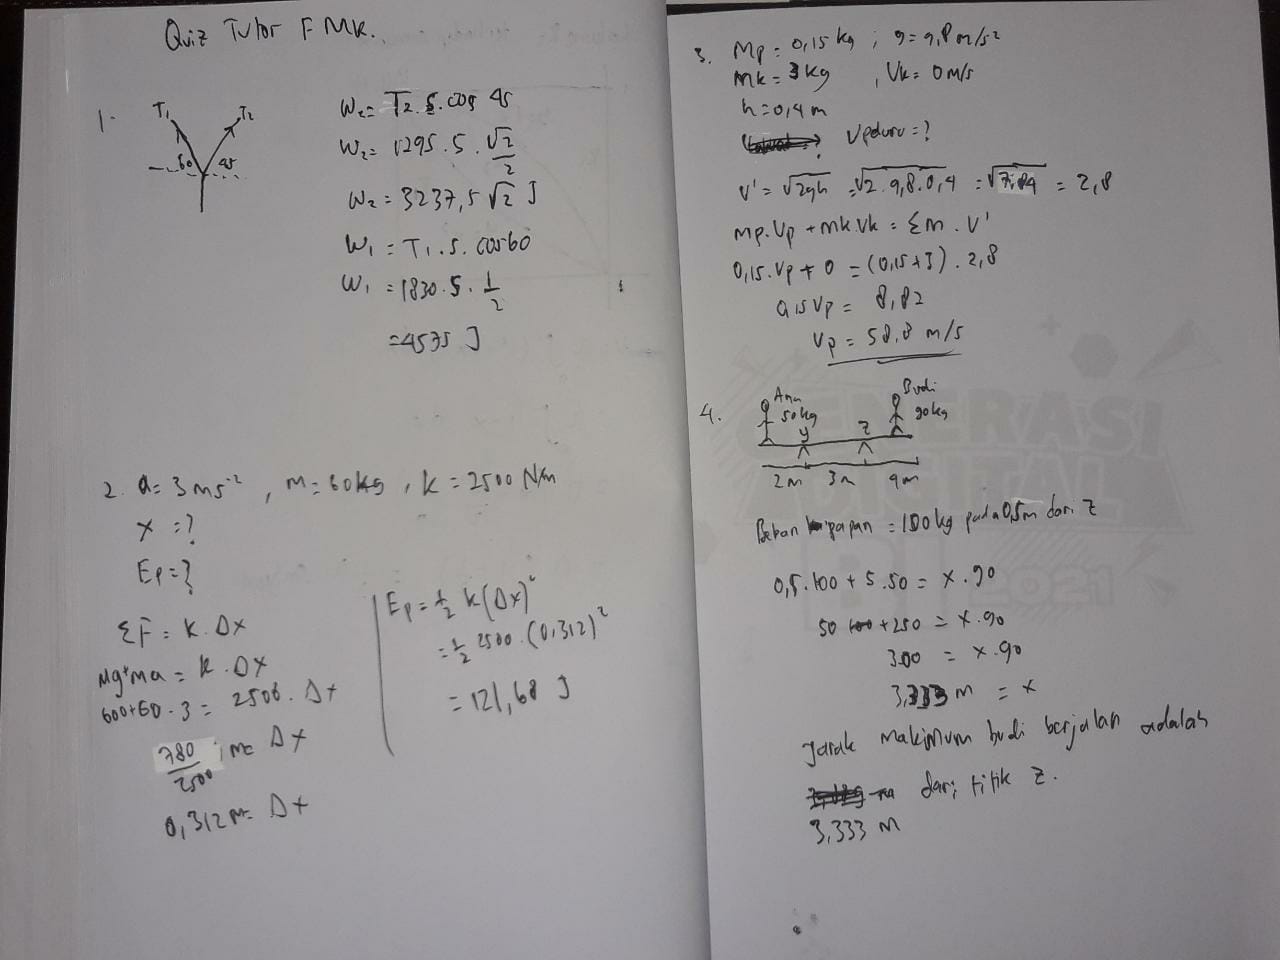 Quiz Tutor FMK.
1.
T₁ T₂
60 45
W₂ = T₂ . s. cos 45
W₂ = 1295 . 5 . √2/2
W₂ = 3237,5 √2 J
W₁ = T₁ . s. cos 60
W₁ = 1830 . 5 . 1/2
= 4575 J
2. a = 3 ms⁻² , m = 60 kg , k = 2500 N/m
x = ?
Ep = ?
ΣF = k . Δx
mg + ma = k . Δx
600 + 60 . 3 = 2500 . Δx
780/2500 m = Δx
0,312 m = Δx
Ep = 1/2 k (Δx)²
= 1/2 2500 . (0,312)²
= 121,68 J
3. Mp = 0,15 kg ; g = 9,8 m/s²
Mk = 3 kg , Vk = 0 m/s
h = 0,4 m
Vpeluru = ?
V' = √2gh = √2 . 9,8 . 0,4 = √7,84 = 2,8
Mp . Vp + mk . Vk = Σm . V'
0,15 . Vp + 0 = (0,15 + 3) . 2,8
0,15 Vp = 8,82
Vp = 58,8 m/s
4.
Ana Budi
50 kg 90 kg
y z
2m 3m 4m
Beban papan = 100 kg pada 0,5m dari z
0,5 . 100 + 5 . 50 = x . 90
50 + 250 = x . 90
300 = x . 90
3,333 m = x
Jarak maksimum budi berjalan adalah
dari titik z.
3,333 m
GENERASI
DIGITAL
BI 2021